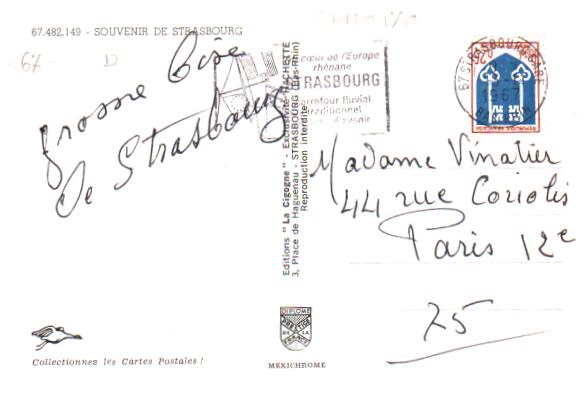 67.482.149 - SOUVENIR DE STRASBOURG
67 D
grosse bise
de Strasbourg
cœur de l'Europe
rhénane
STRASBOURG
carrefour fluvial
traditionnel
d'avenir
67 STRASBOURG GARE
1967
BAS RHIN
Editions "La Cigogne" - Exclusivité HACHETTE
3, Place de Haguenau - STRASBOURG (Bas-Rhin)
Reproduction interdite
Madame Vinatier
44 rue Coriolis
Paris 12e
75
DIPLOME
PRESTIGE
DE LA
Collectionnez les Cartes Postales !
MEXICHROME